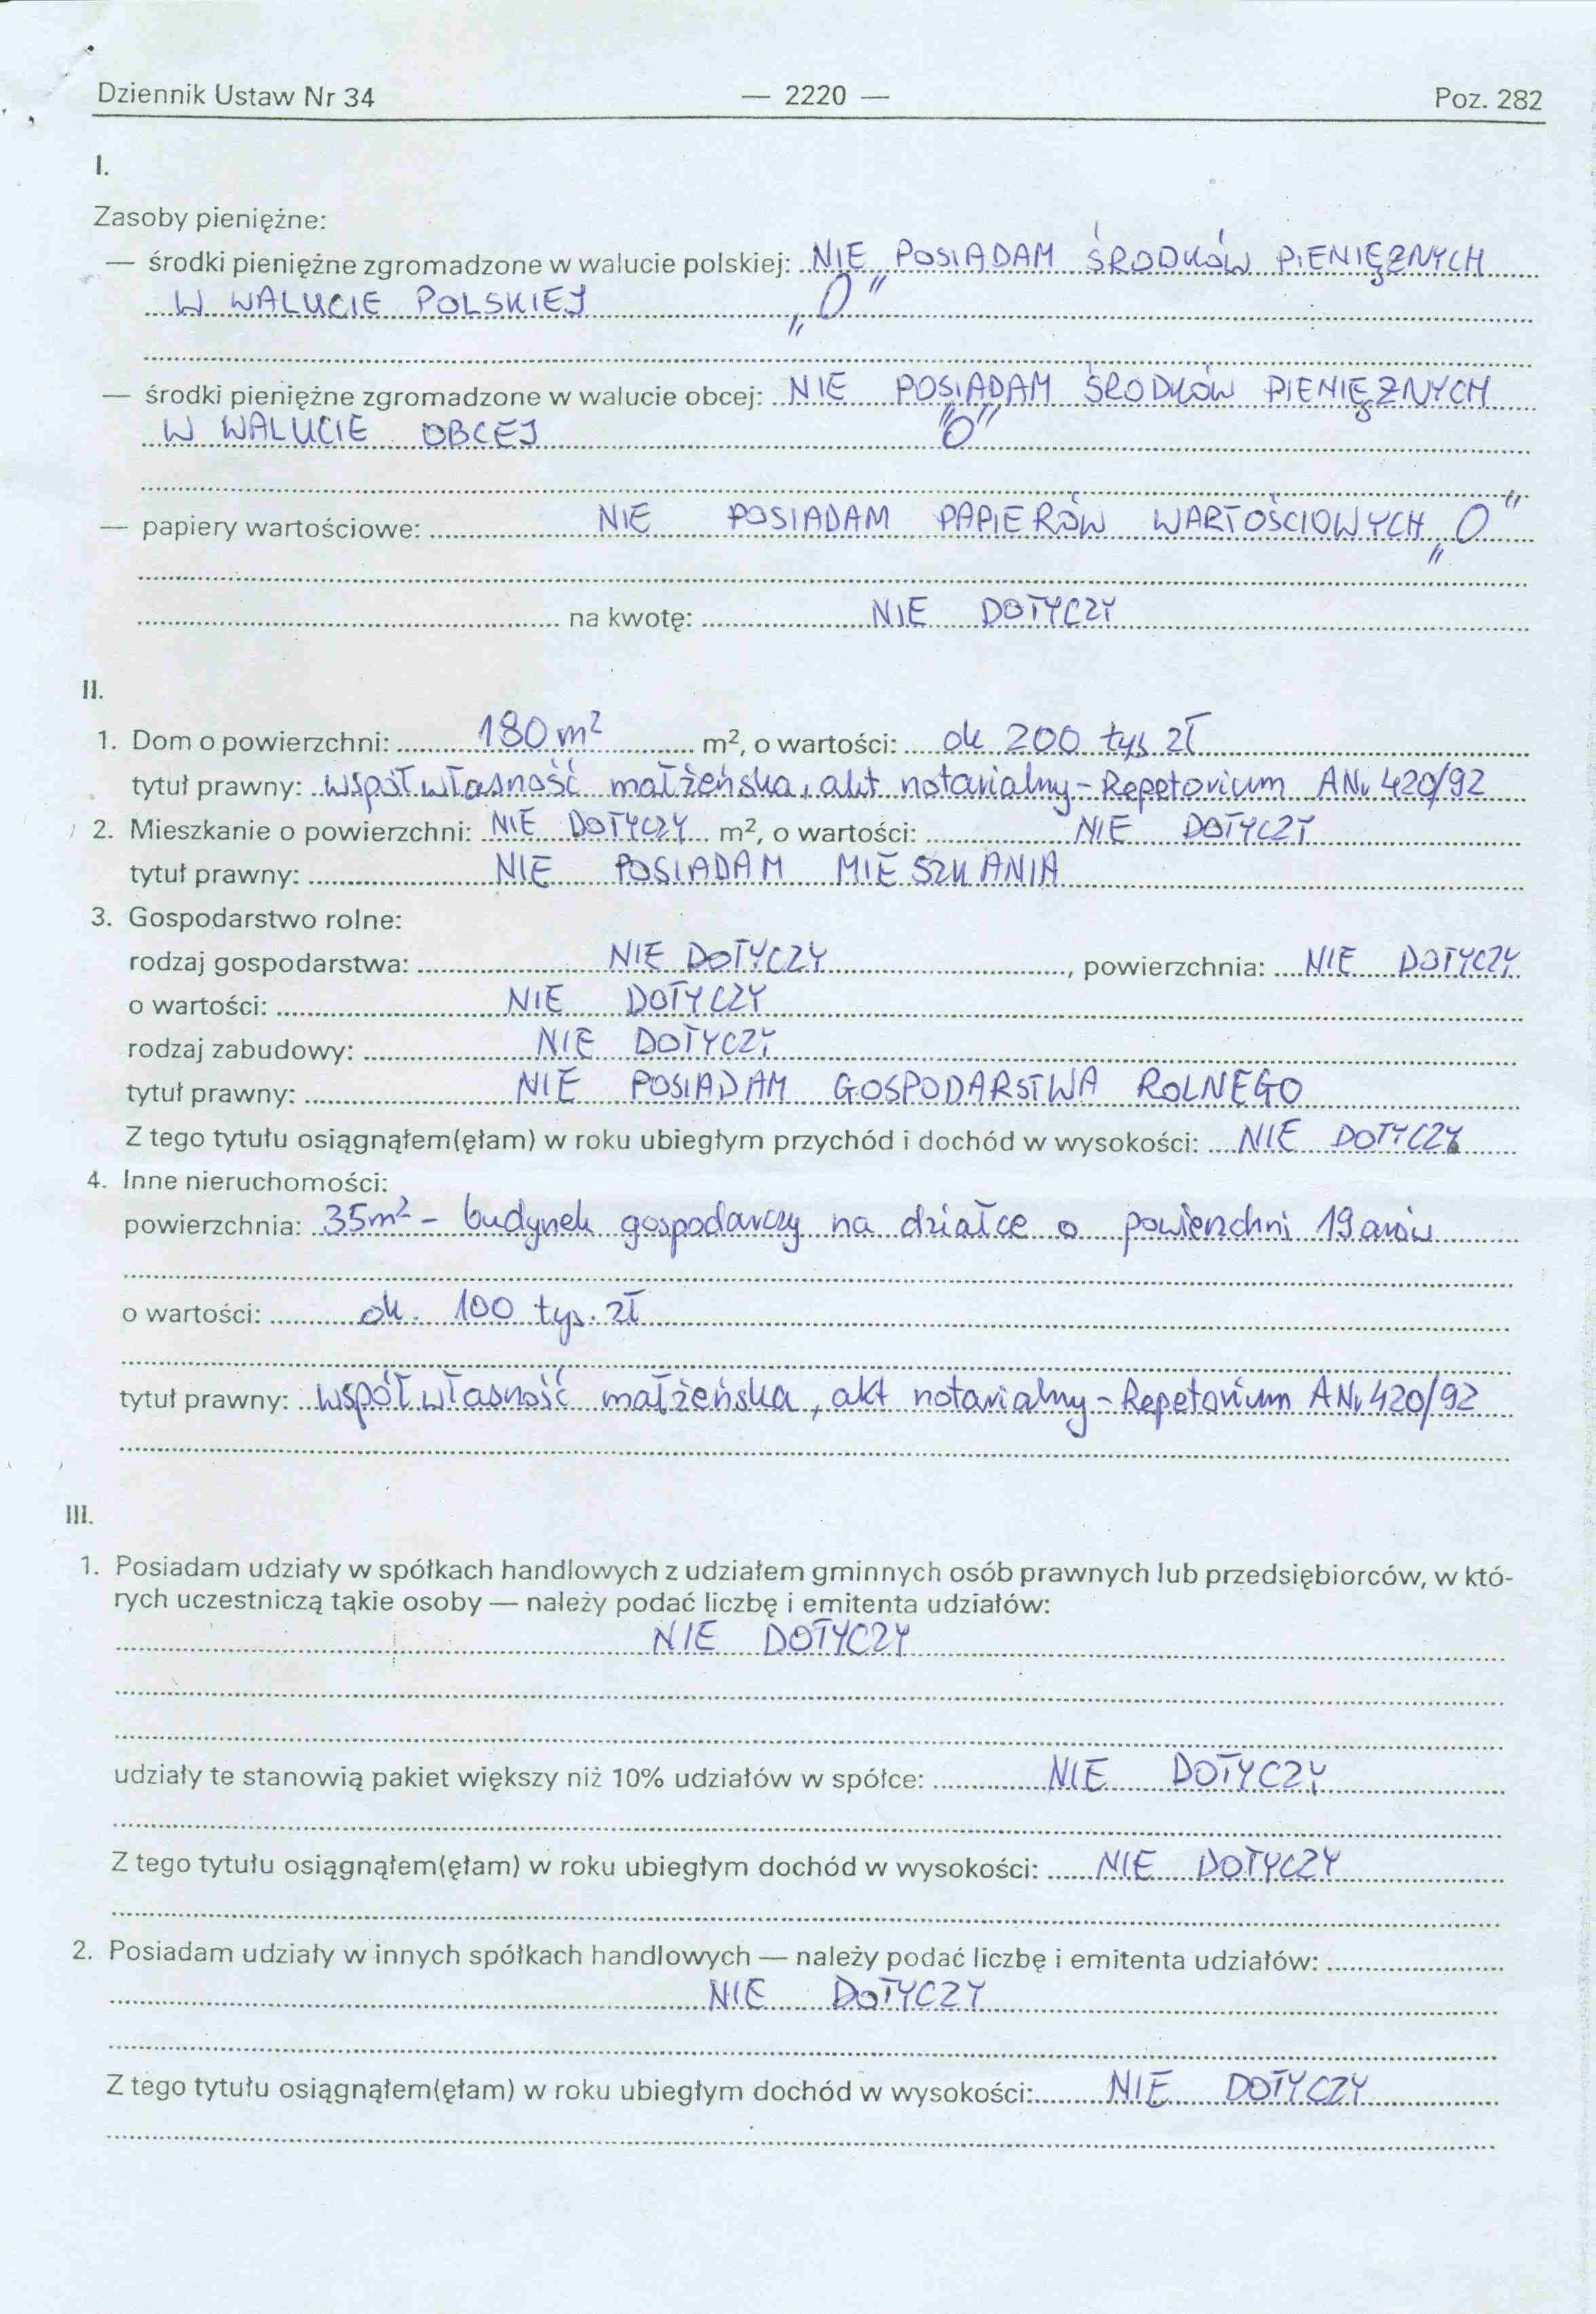 Dziennik Ustaw Nr 34 — 2220 — Poz. 282
I.
Zasoby pieniężne:
— środki pieniężne zgromadzone w walucie polskiej: NIE POSIADAM ŚRODKÓW PIENIĘŻNYCH
W WALUCIE POLSKIEJ „0”
— środki pieniężne zgromadzone w walucie obcej: NIE POSIADAM ŚRODKÓW PIENIĘŻNYCH
W WALUCIE OBCEJ "0"
— papiery wartościowe: NIE POSIADAM PAPIERÓW WARTOŚCIOWYCH „0”
na kwotę: NIE DOTYCZY
II.
1. Dom o powierzchni: 180 m² m², o wartości: ok 200 tys. zł
tytuł prawny: współwłasność małżeńska, akt notarialny - Repetorium A Nr 420/92
2. Mieszkanie o powierzchni: NIE DOTYCZY m², o wartości: NIE DOTYCZY
tytuł prawny: NIE POSIADAM MIESZKANIA
3. Gospodarstwo rolne:
rodzaj gospodarstwa: NIE DOTYCZY, powierzchnia: NIE DOTYCZY
o wartości: NIE DOTYCZY
rodzaj zabudowy: NIE DOTYCZY
tytuł prawny: NIE POSIADAM GOSPODARSTWA ROLNEGO
Z tego tytułu osiągnąłem(ęłam) w roku ubiegłym przychód i dochód w wysokości: NIE DOTYCZY
4. Inne nieruchomości:
powierzchnia: 35m² - budynek gospodarczy na działce o powierzchni 19 arów
o wartości: ok. 100 tys. zł
tytuł prawny: współwłasność małżeńska, akt notarialny - Repetorium A Nr 420/92
III.
1. Posiadam udziały w spółkach handlowych z udziałem gminnych osób prawnych lub przedsiębiorców, w któ-
rych uczestniczą takie osoby — należy podać liczbę i emitenta udziałów:
NIE DOTYCZY
udziały te stanowią pakiet większy niż 10% udziałów w spółce: NIE DOTYCZY
Z tego tytułu osiągnąłem(ęłam) w roku ubiegłym dochód w wysokości: NIE DOTYCZY
2. Posiadam udziały w innych spółkach handlowych — należy podać liczbę i emitenta udziałów:
NIE DOTYCZY
Z tego tytułu osiągnąłem(ęłam) w roku ubiegłym dochód w wysokości: NIE DOTYCZY